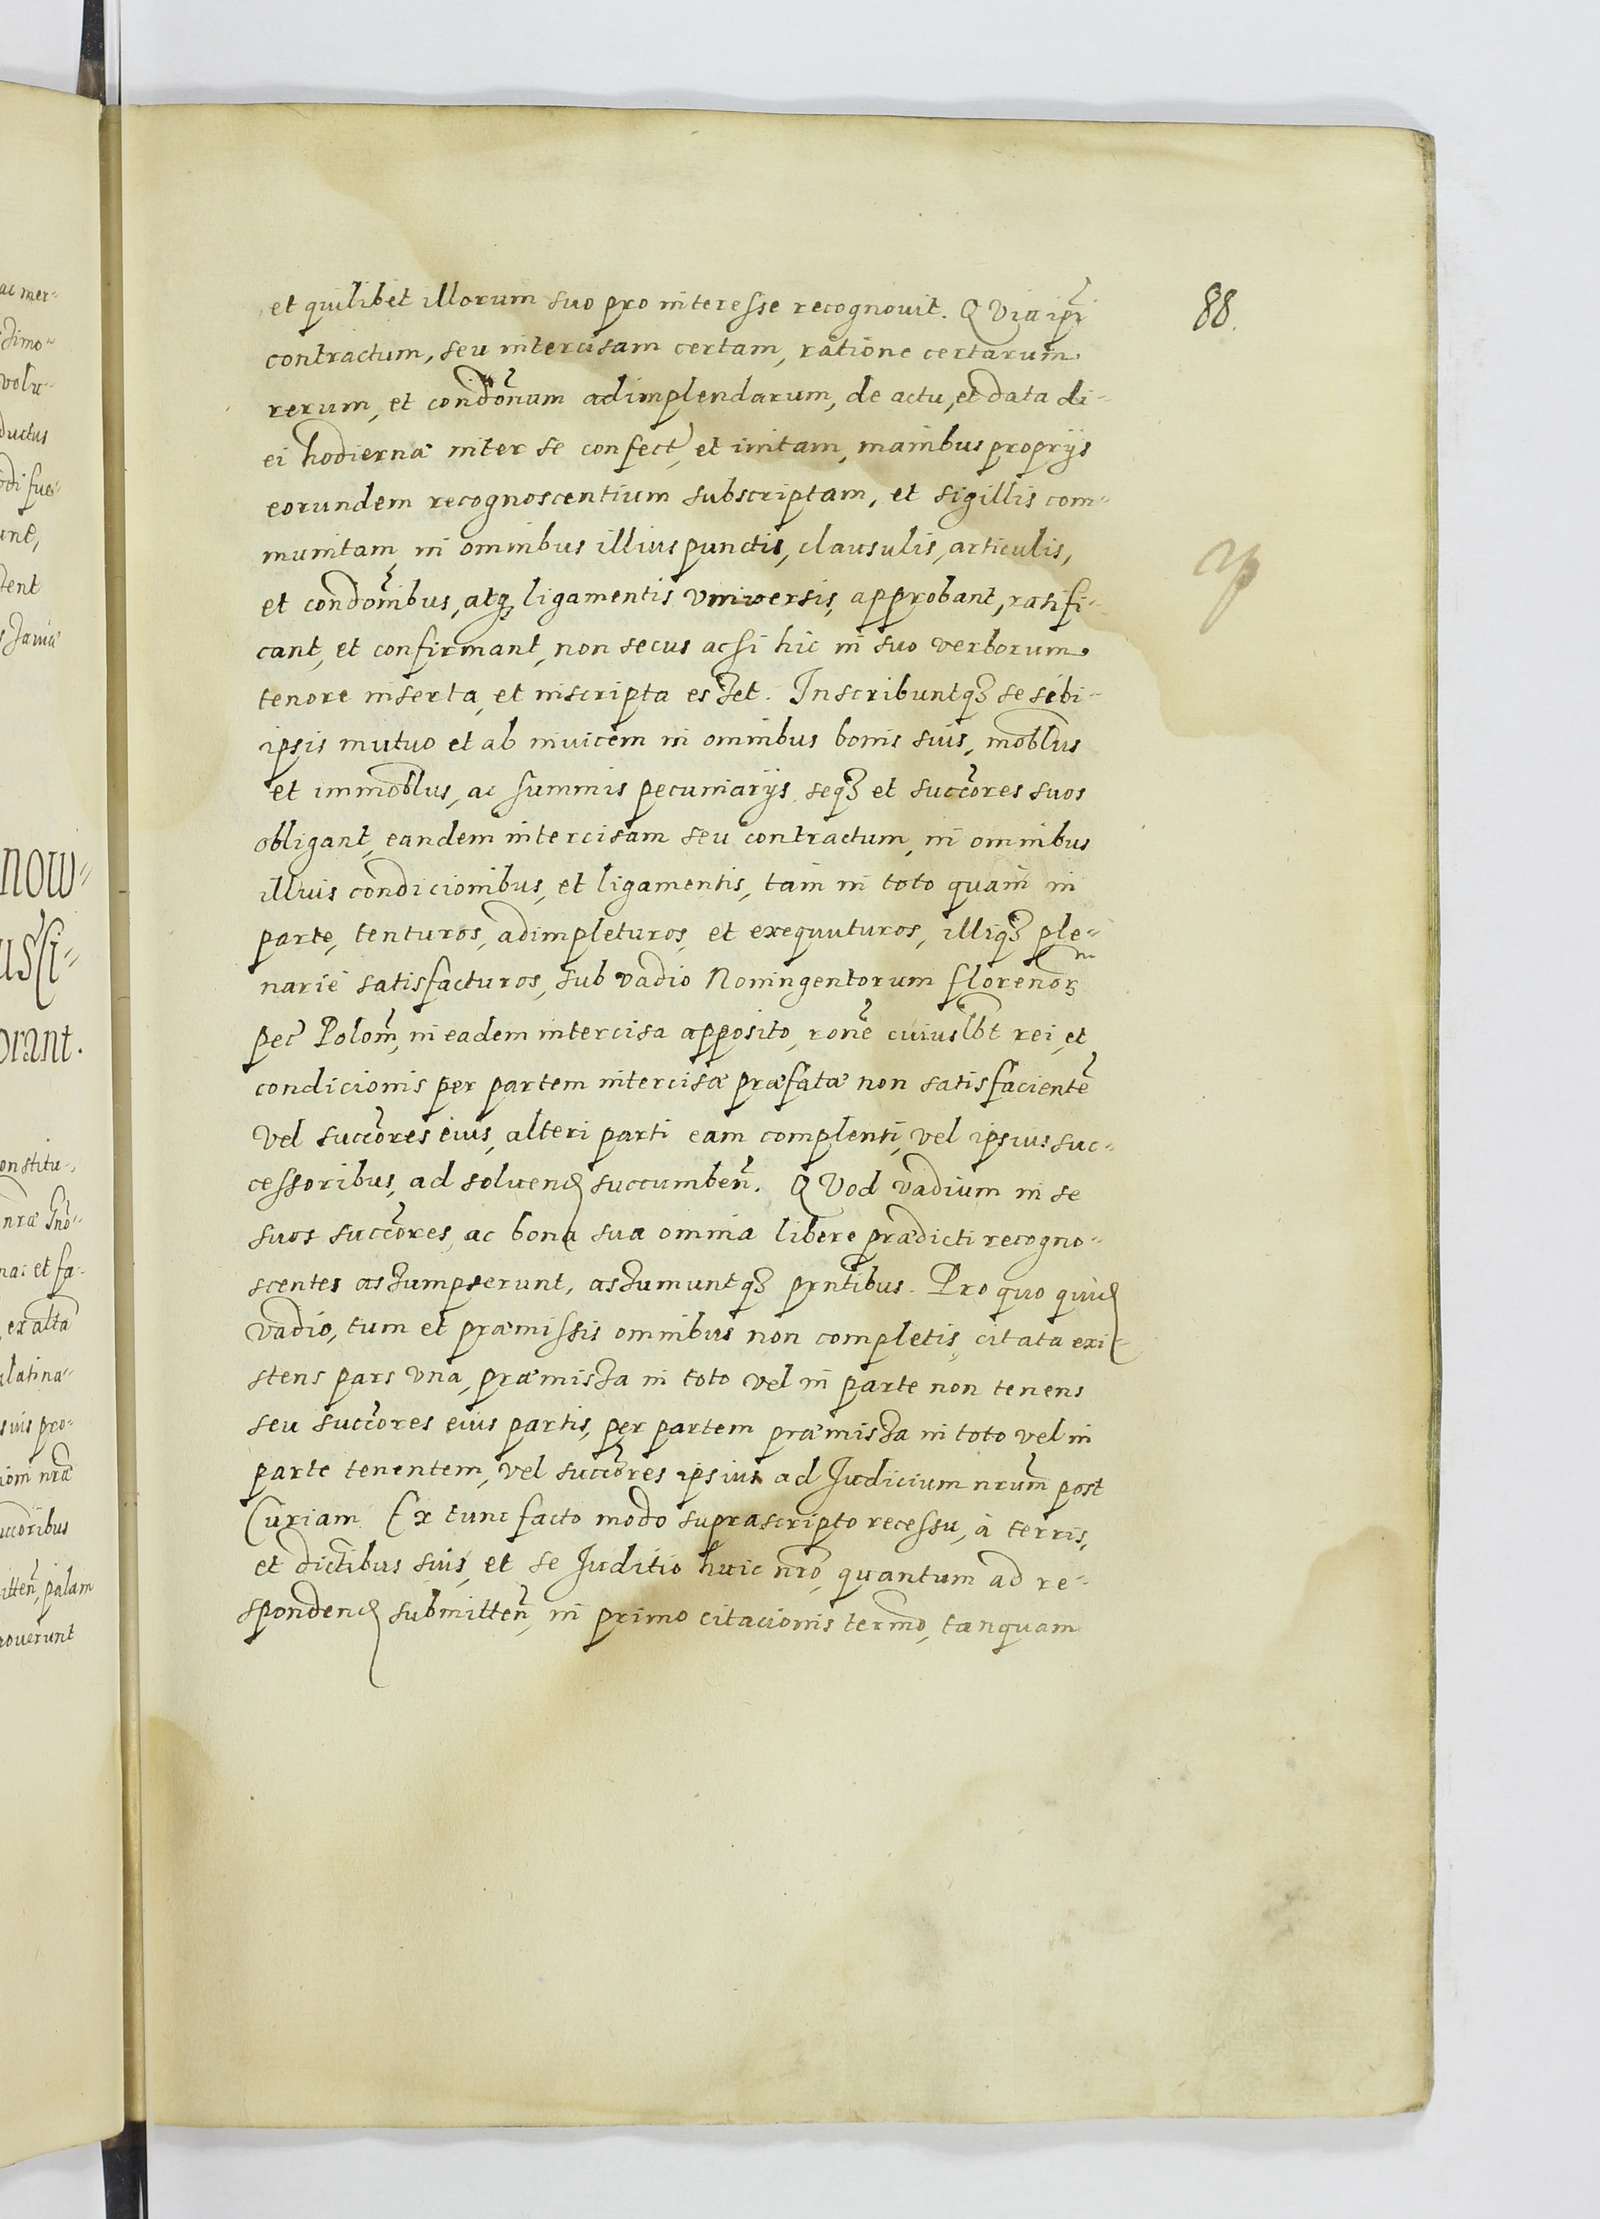 88.
et quilibet illorum suo pro interesse recognouit. QVia ip̃i
contractum, seu intercisam certam, ratione certarum
rerum, et condõnum adimplendarum, de actu, et data di-
ei hodiernæ inter se confect, et initam, manibus proprijs
eorundem recognoscentium subscriptam, et sigillis com-
munitam, in omnibus illius punctis, clausulis, articulis,
et condõnibus, atq ligamentis vniversis, approbant, ratifi-
cant, et confirmant, non secus acsi hic in suo verborum
tenore inserta, et inscripta esset. Inscribuntq3 se sibi-
ipsis mutuo et ab inuicem in omnibus bonis suis, moblbus
et immoblbus, ac summis pecuniarijs, seq3 et succõres suos
obligant, eandem intercisam seu contractum, in omnibus
illius condicionibus, et ligamentis, tam in toto quam in
parte, tenturos, adimpleturos, et exequuturos, illiq3 ple-
narie satisfacturos, sub vadio Noningentorum florenor
pec Polonı̃, in eadem intercisa apposito, rone cuiuslbt rei, et
condicionis per partem intercisæ præfatæ non satisfaciente
vel succõres eius, alteri parti eam complenti, vel ipsius suc-
cessoribus, ad soluend succumbeñ. QVod vadium in se
suos succõres, ac bona sua omnia libere prædicti recogno-
scentes assumpserunt, assumuntq3 prntibus. Pro quo quid
vadio, tum et præmissis omnibus non completis, citata exi-
stens pars vna, præmissa in toto vel in parte non tenens
seu succõres eius partis, per partem præmissa in toto vel in
parte tenentem, vel succõres ipsius ad Iudicium nrum post
Curiam Ex tunc facto modo suprascripto recessu, à terris,
et dictibus suis, et se Iuditio huic nro, quantum ad re-
spondend submitteñ, in primo citacionis termo, tanquam